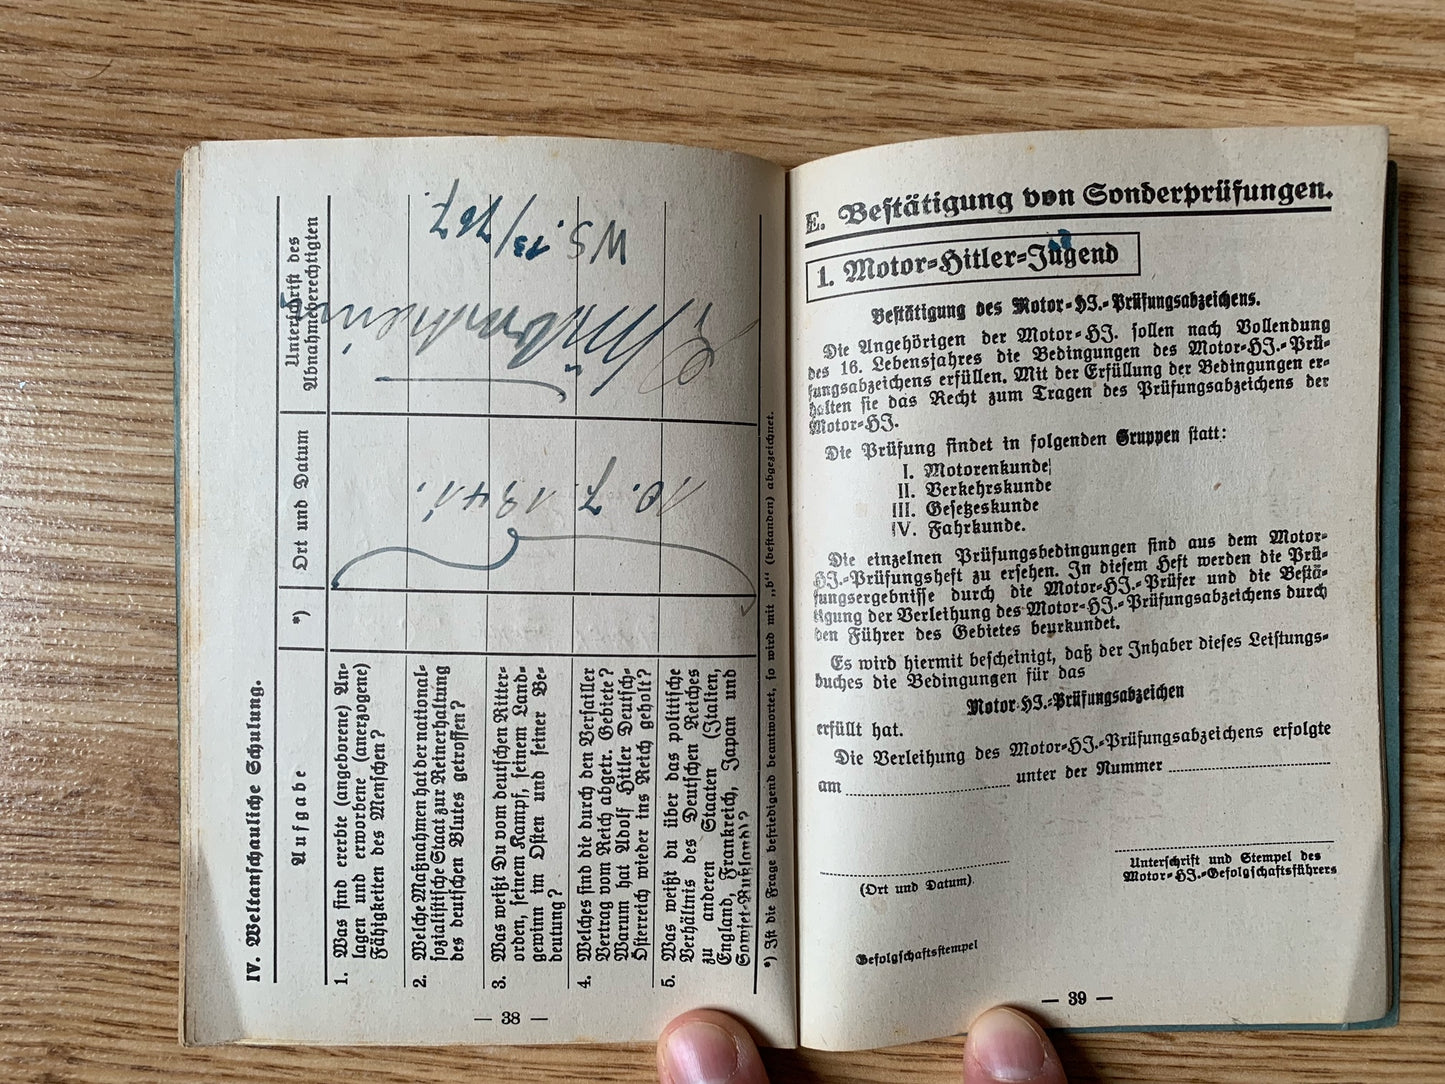 IV. Weltanschauliche Schulung.
Aufgabe
*)
Ort und Datum
Unterschrift des
Abnahmeberechtigten
1. Was sind ererbte (angeborene) An-
lagen und erworbene (anerzogene)
Fähigkeiten des Menschen?
2. Welche Maßnahmen hat der national-
sozialistische Staat zur Reinerhaltung
des deutschen Blutes getroffen?
3. Was weißt Du vom deutschen Ritter-
orden, seinem Kampf, seinem Land-
gewinn im Osten und seiner Be-
deutung?
4. Welches sind die durch den Versailler
Vertrag vom Reich abgetr. Gebiete?
Warum hat Adolf Hitler Deutsch-
Österreich wieder ins Reich geholt?
5. Was weißt du über das politische
Verhältnis des Deutschen Reiches
zu anderen Staaten (Italien,
England, Frankreich, Japan und
Sowjet-Rußland)?
10. 7. 1941.
WS. 13/767.
*) Ist die Frage befriedigend beantwortet, so wird mit „b“ (bestanden) abgezeichnet.
— 38 —
E. Bestätigung von Sonderprüfungen.
1. Motor-Hitler-Jugend
Bestätigung des Motor-HJ.-Prüfungsabzeichens.
Die Angehörigen der Motor-HJ. sollen nach Vollendung
des 16. Lebensjahres die Bedingungen des Motor-HJ.-Prü-
fungsabzeichens erfüllen. Mit der Erfüllung der Bedingungen er-
halten sie das Recht zum Tragen des Prüfungsabzeichens der
Motor-HJ.
Die Prüfung findet in folgenden Gruppen statt:
I. Motorenkunde
II. Verkehrskunde
III. Gesetzeskunde
IV. Fahrkunde.
Die einzelnen Prüfungsbedingungen sind aus dem Motor-
HJ.-Prüfungsheft zu ersehen. In diesem Heft werden die Prü-
fungsergebnisse durch die Motor-HJ.-Prüfer und die Bestä-
tigung der Verleihung des Motor-HJ.-Prüfungsabzeichens durch
den Führer des Gebietes beurkundet.
Es wird hiermit bescheinigt, daß der Inhaber dieses Leistungs-
buches die Bedingungen für das
Motor-HJ.-Prüfungsabzeichen
erfüllt hat.
Die Verleihung des Motor-HJ.-Prüfungsabzeichens erfolgte
am unter der Nummer
(Ort und Datum)
Unterschrift und Stempel des
Motor-HJ.-Gefolgschaftsführers
Gefolgschaftsstempel
— 39 —